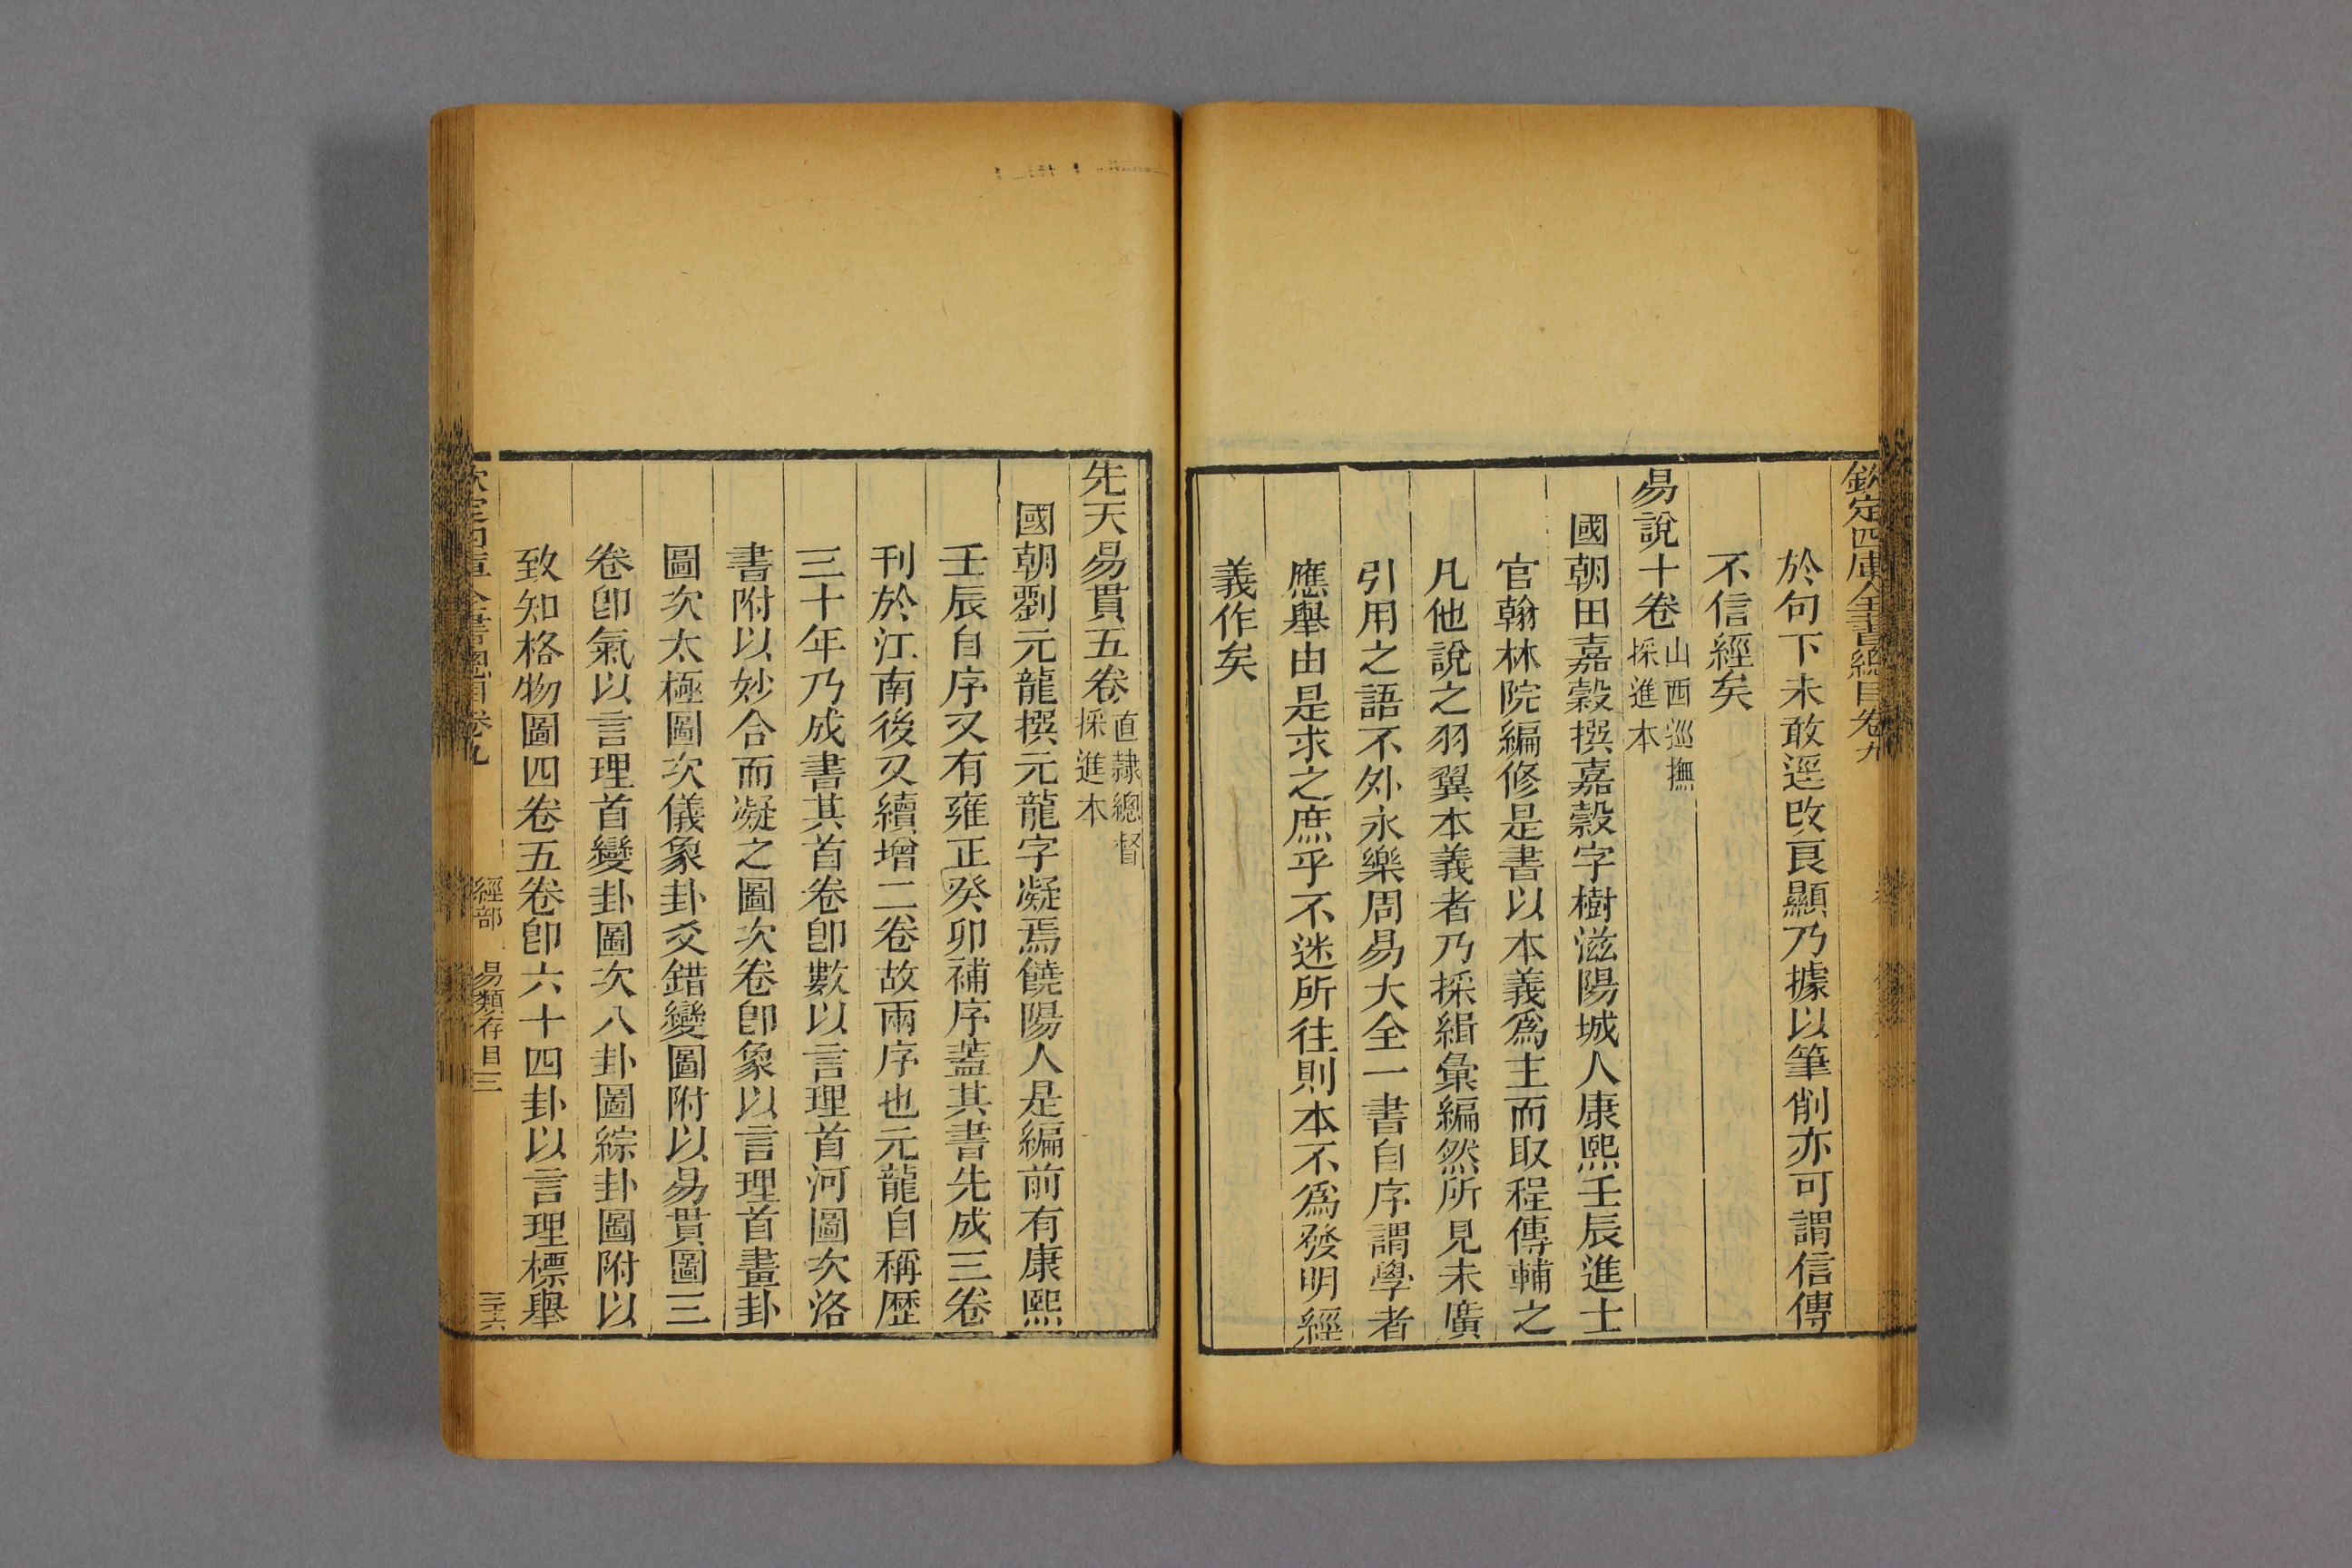 欽定四庫全書總目卷九
於句下未敢逕改良顯乃據以筆削亦可謂信傳
不信經矣
易說十卷山西巡撫
採進本
國朝田嘉穀撰嘉穀字樹滋陽城人康熙壬辰進士
官翰林院編修是書以本義爲主而取程傳輔之
凡他說之羽翼本義者乃採緝彙編然所見未廣
引用之語不外永樂周易大全一書自序謂學者
應舉由是求之庶乎不迷所往則本不爲發明經
義作矣
先天易貫五卷直隸總督
採進本
國朝劉元龍撰元龍字凝焉饒陽人是編前有康熙
壬辰自序又有雍正癸卯補序蓋其書先成三卷
刊於江南後又續增二卷故兩序也元龍自稱歷
三十年乃成書其首卷卽數以言理首河圖次洛
書附以妙合而凝之圖次卷卽象以言理首畫卦
圖次太極圖次儀象卦爻錯變圖附以易貫圖三
卷卽氣以言理首變卦圖次八卦圖綜卦圖附以
致知格物圖四卷五卷卽六十四卦以言理標舉
欽定四庫全書總目卷九
經部 易類存目三
三十六